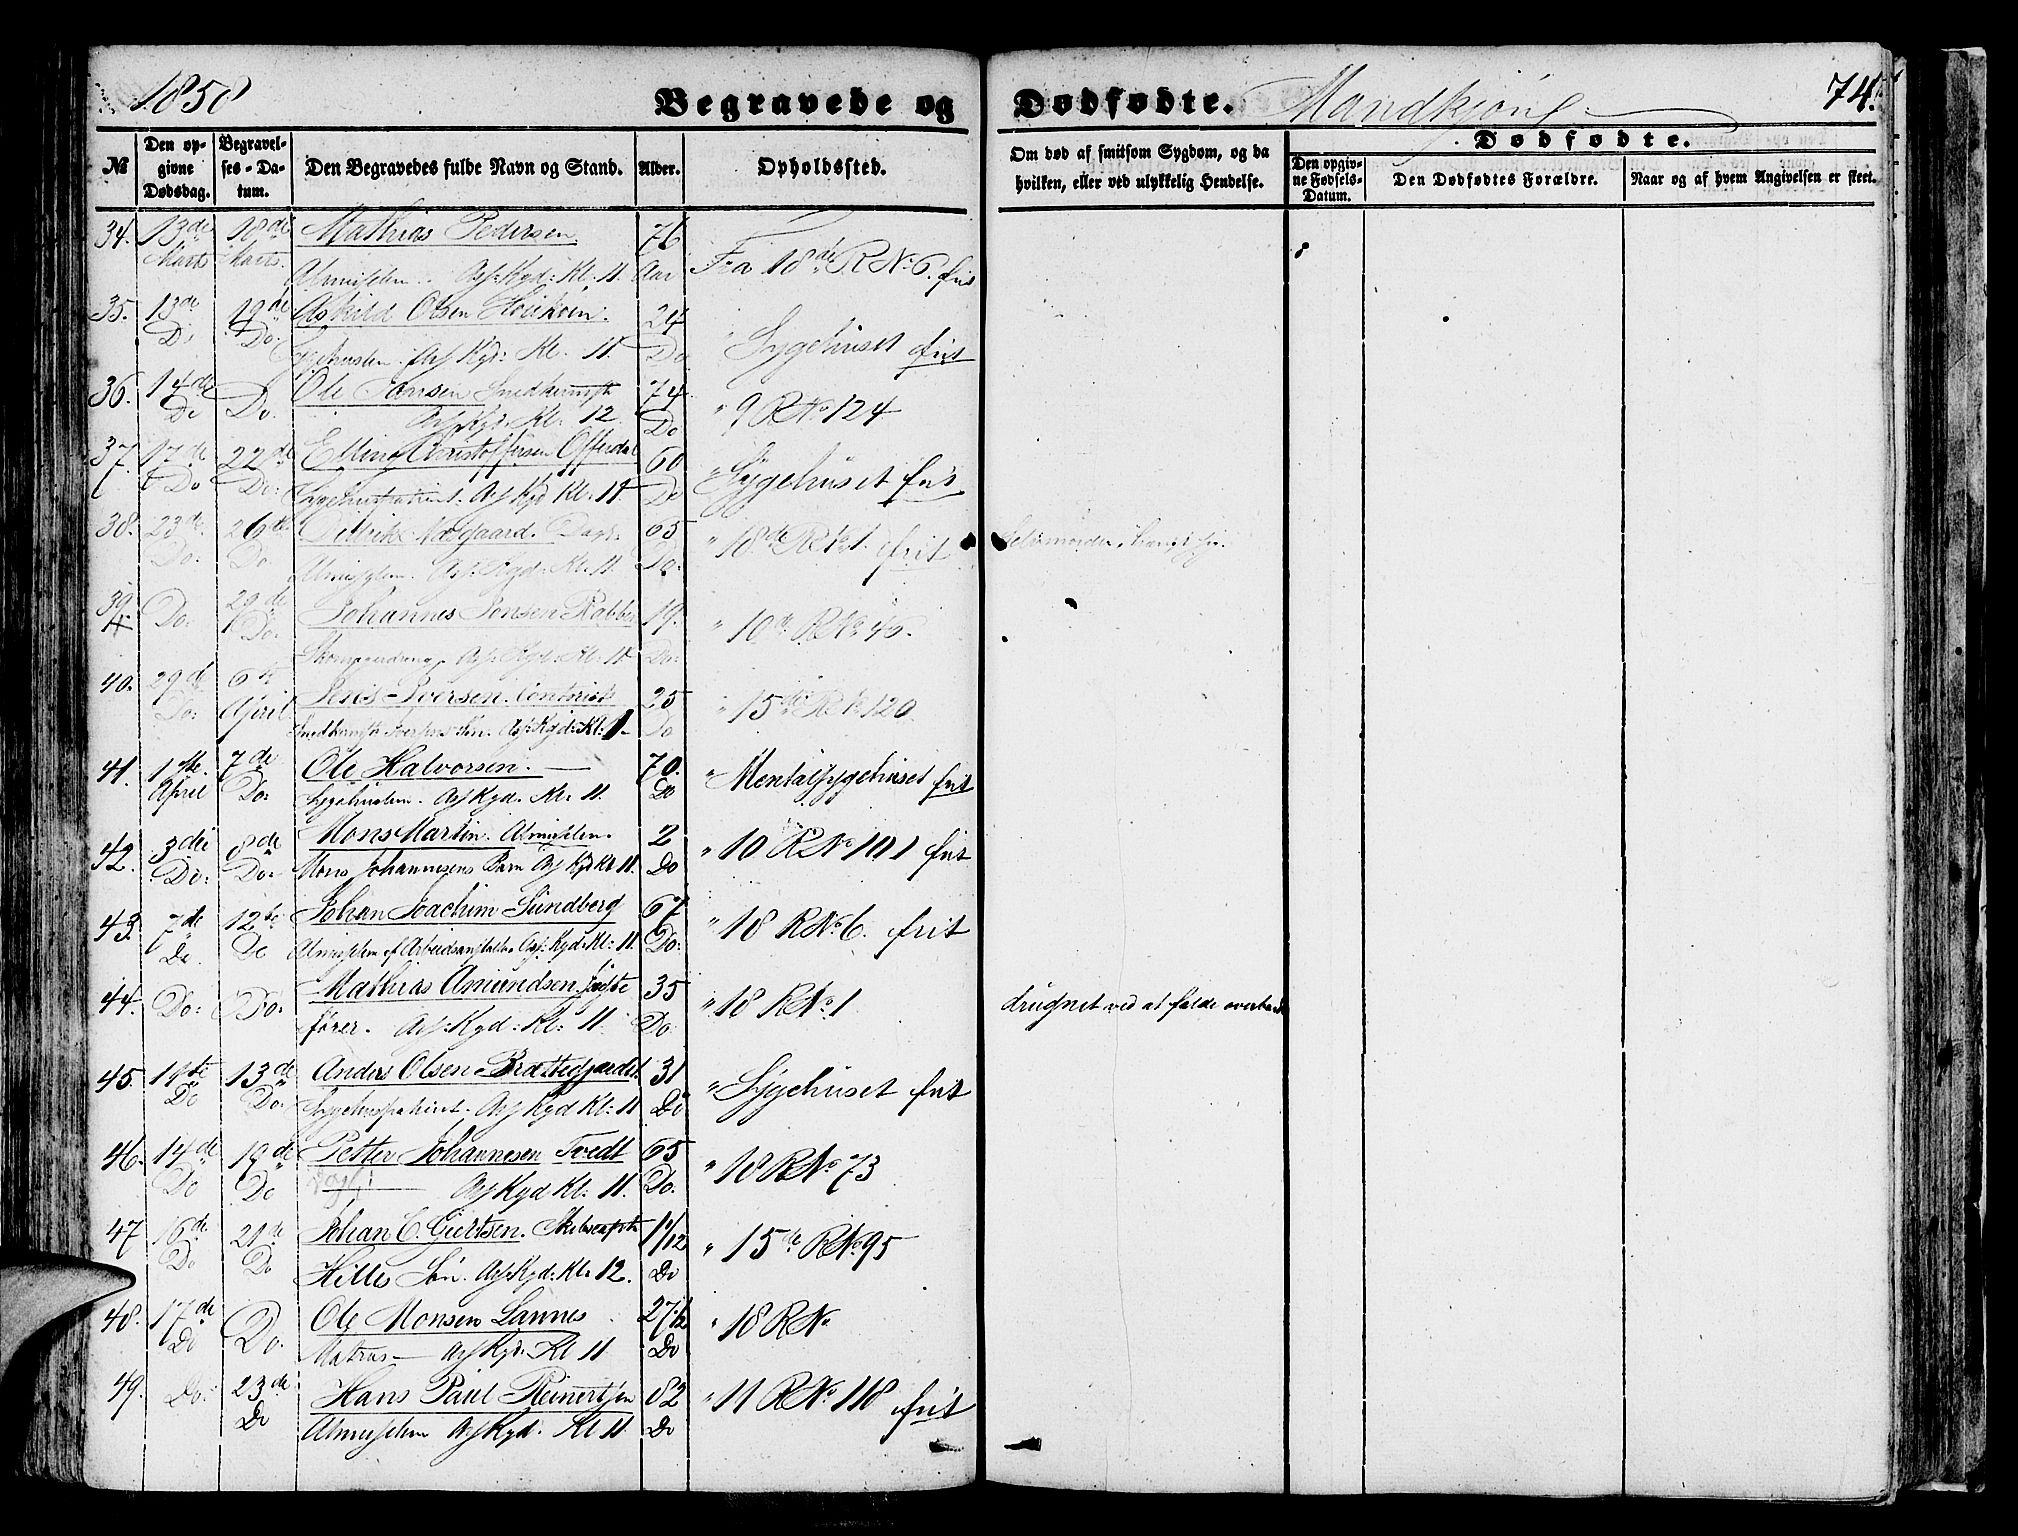 1858
Begravede og Dødfødte. Mandkjøn
74.
№
Den opgivne Dødsdag.
Begravelses-Datum.
Den Begravedes fulde Navn og Stand.
Alder.
Opholdssted.
Om død af smitsom Sygdom, og da hvilken, eller ved ulykkelig Hendelse.
Dødfødte.
Den opgivne Fødsels-Datum.
Den Dødfødtes Forældre.
Naar og af hvem Angivelsen er skeet.
34. 13de 18de Mathias Pedersen 76 Fra 18de R № 6. frit
Marts Marts. Almisselem. Asf: Kgd: Kl. 11. Aar
35. 13de 19de Askild Olsen 24 " Sygehuset frit
Do Do. Asf Kgd: Kl. 11. Do
36. 14de Do. Ole Jansen 74 " 9 R № 124
Do Asf Kgd. Kl. 12 Do
37. 17de 22de Elling Christoffersen Offerdal 60 " Sygehuset frit
Do Do. Asf Kgd Kl. 11. Do
38. 23de 26de Didrik 65 " 18de R № 1. frit
Do. Do. Almisselem. Asf: Kgd: Kl. 11. Do.
39. Do. 29de Johannes Jensen 19. " 10de R №
Do. Asf: Kgd: Kl. 11 Do.
40. 29de 6te Jens Iversen. 25 " 15de R № 120.
Do: April Søn. Asf: Kgd: Kl: 11 Do
41. 1ste 7de Ole Halvorsen. 70. " Mentalsygehuset frit
April Do: Sygehuslem. Asf Kgd. Kl: 11. Do
42. 3die 8de Mons Martin. Almisselem. 2 " 10 R № 101 frit
Do: Do: Mons Johannesens Barn Asf Kgd Kl 11. Do
43. 7de 12te Johan Joachim Sundberg 67 " 18 R № 6. frit
Do. Do Almisselem af Arbeidsanstalten Asf: Kgd: Kl: 11. Do.
44. Do: Do. Mathias Amundsen. 35 " 18 R № 1 drugnet ved at falde overbord
fører. Asf: Kgd: Kl: 11. Do.
45. 13de Anders Olsen 31 " Sygehuset frit
Do Do. Sygehuspatient. Asf Kgd Kl: 11 Do
46. 14de 19de Petter Johannesen Tvedt 65 " 18 R № 73
Do Do Asf Kgd Kl: 11. Do.
47. 16de 21de Johan C. Giertsen. 1/12 " 15de R № 95
Do Do Hilles Søn. Asf: Kgd: Kl. 12. Do
48. 17de Do. Ole Monsen Lannes 27 1/2 " 18 R №
Do Matros Asf Kgd. Kl 11. Do
49. Do. 23de Hans Paul Reinertsen 82 " 11 R № 118 frit
Do Almisselem Asf Kgd. Kl 11. Do